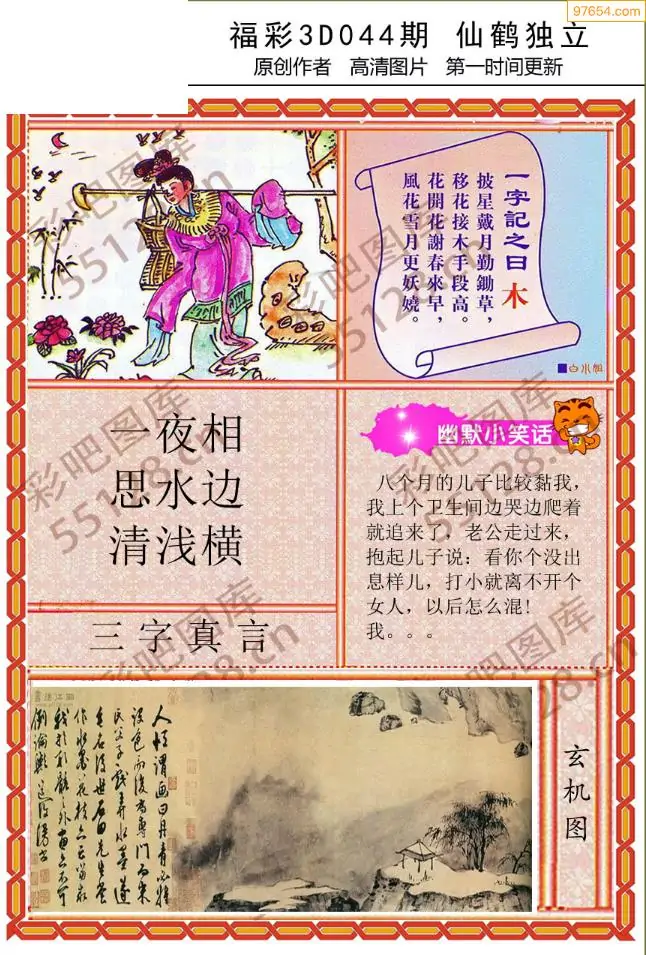 97654.com
福彩3D044期 仙鹤独立
原创作者 高清图片 第一时间更新
一字記之曰 木
披星戴月勤鋤草，
移花接木手段高。
花開花謝春來早，
風花雪月更妖嬈。
白小姐
一夜相
思水边
清浅横
三字真言
幽默小笑话
八个月的儿子比较黏我，
我上个卫生间边哭边爬着
就追来了，老公走过来，
抱起儿子说：看你个没出
息样儿，打小就离不开个
女人，以后怎么混！
我。。。
玄机图
人恒谓画曰丹青必将
设色而后为专门
彩吧图库
55128.cn
彩吧图库
55128.cn
彩吧图库
55128.cn
彩吧图库
55128.cn